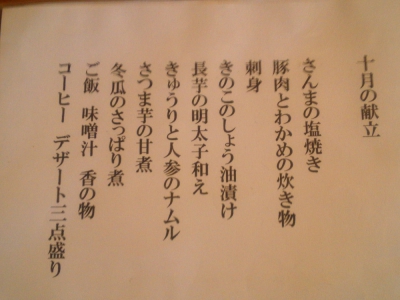 十月の献立
さんまの塩焼き
豚肉とわかめの炊き物
刺身
きのこのしょう油漬け
長芋の明太子和え
きゅうりと人参のナムル
さつま芋の甘煮
冬瓜のさっぱり煮
ご飯 味噌汁 香の物
コーヒー デザート三点盛り